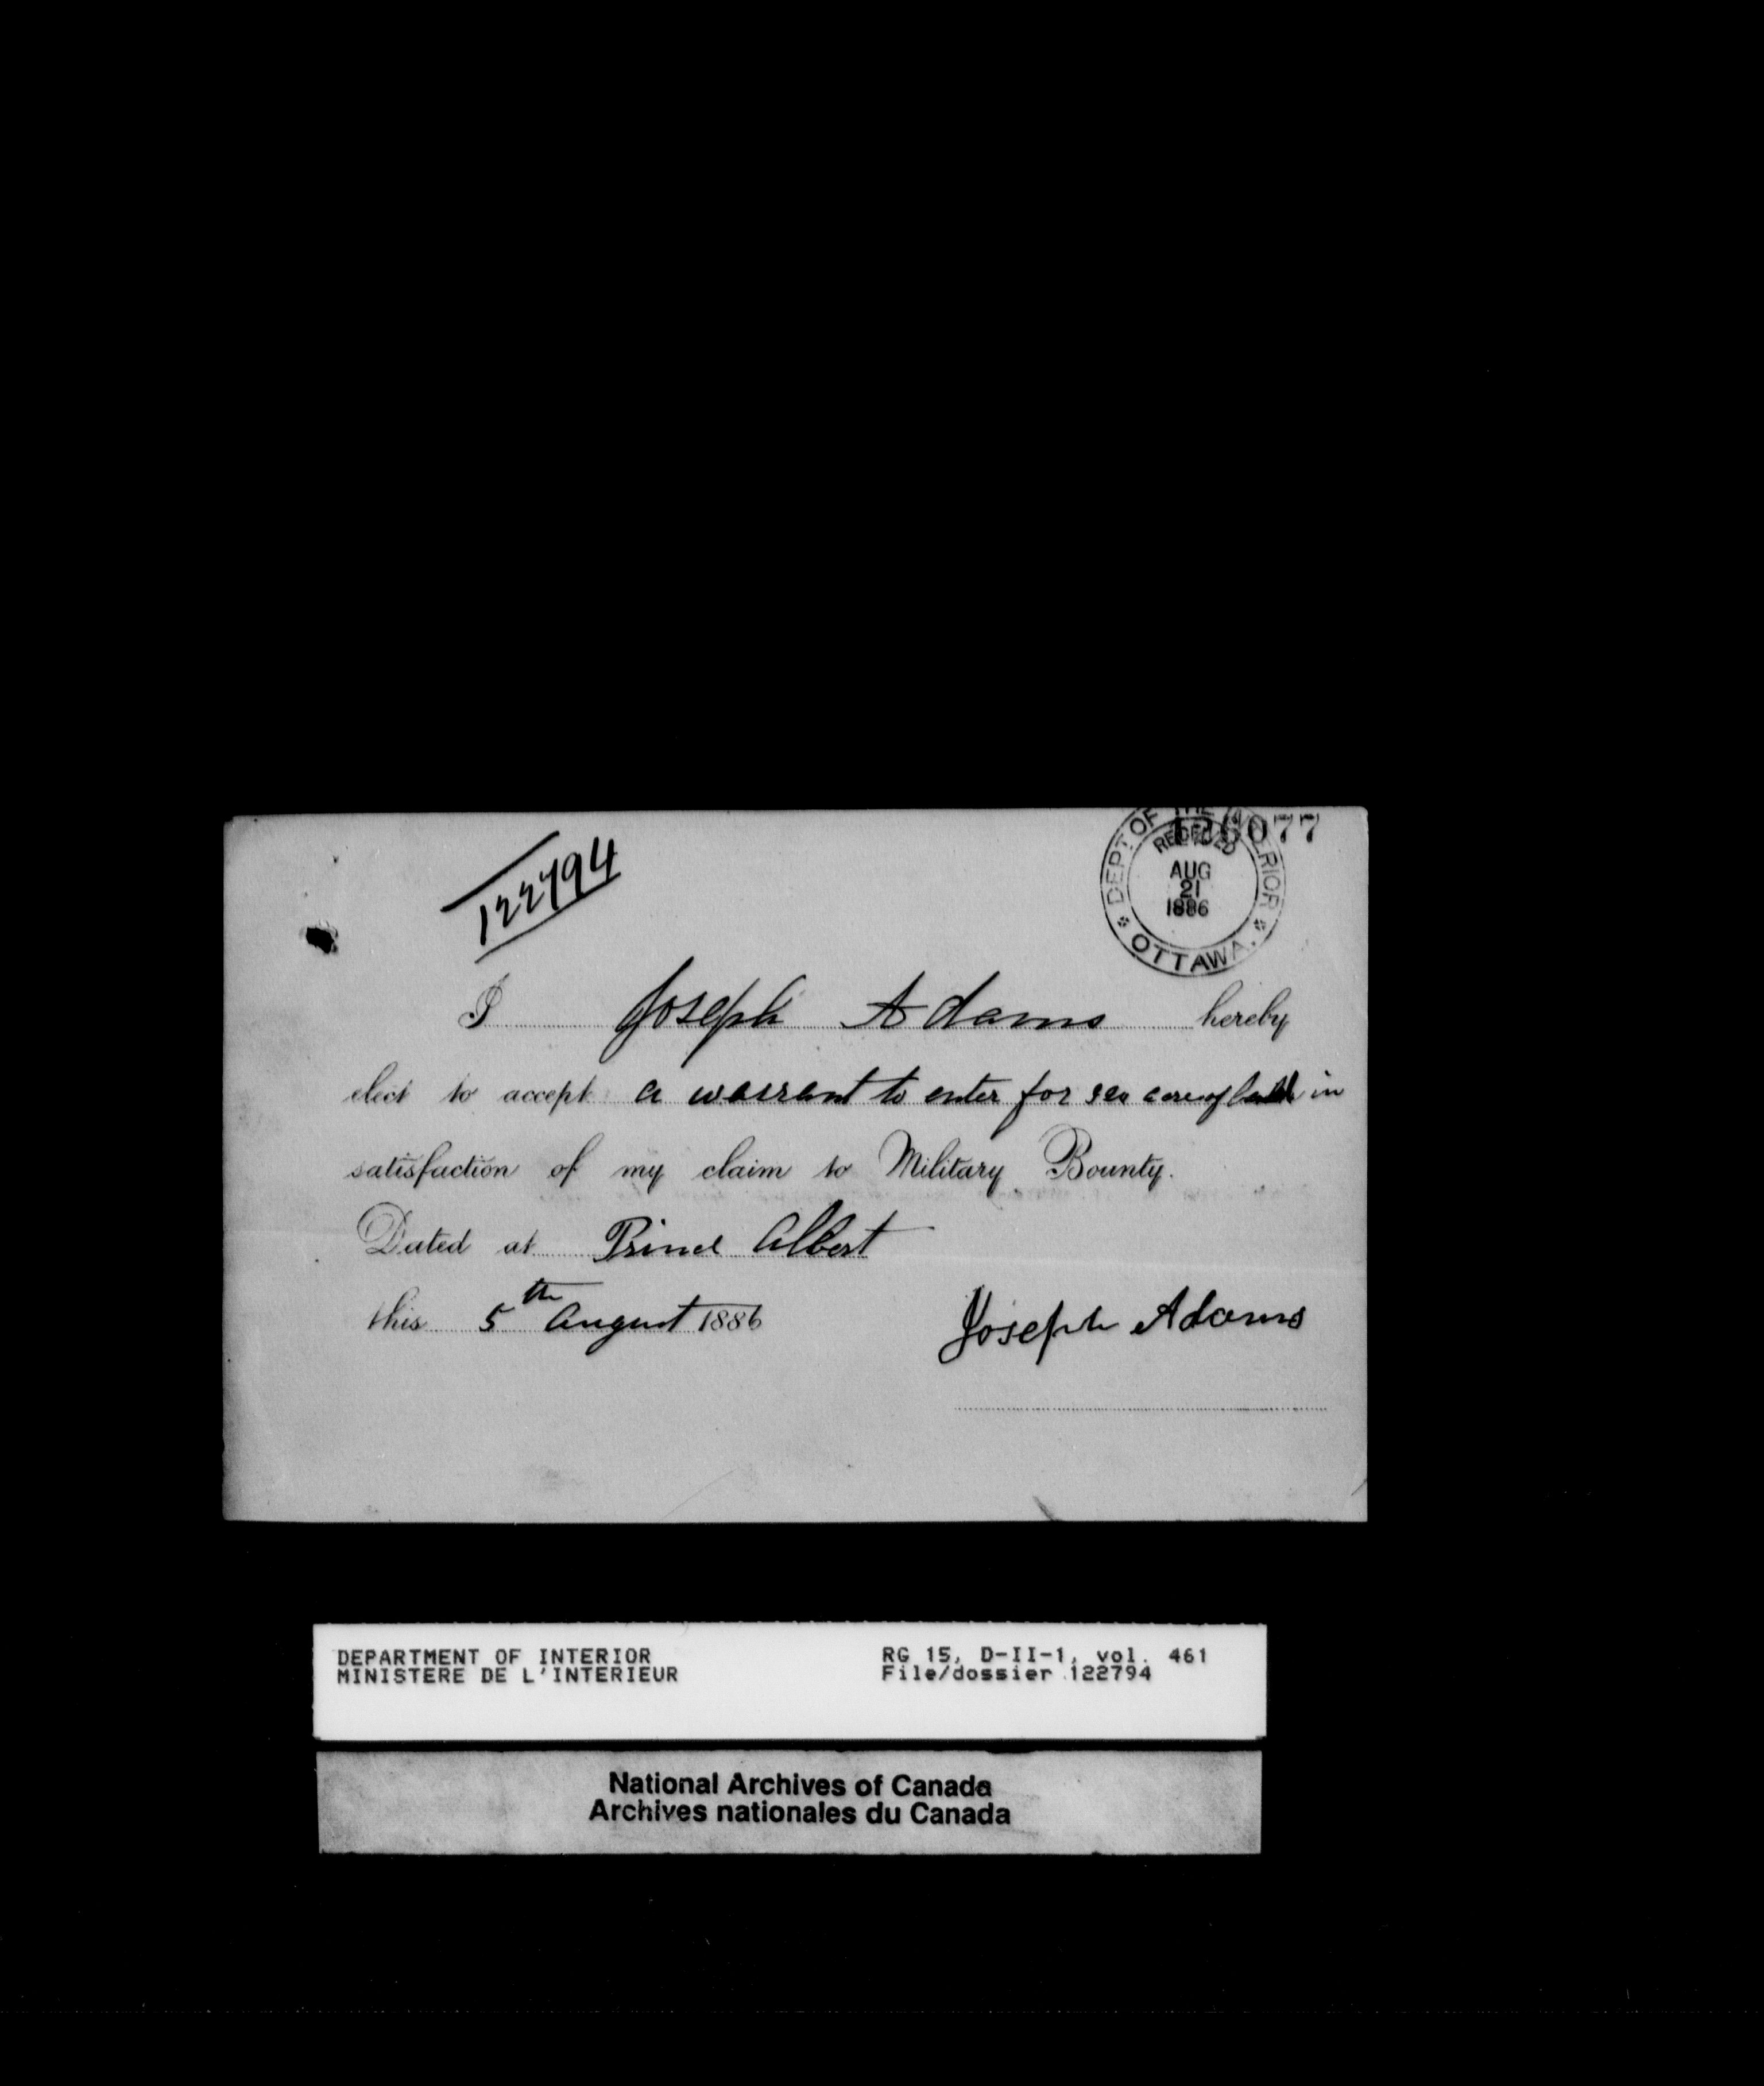 122794
DEPT. OF THE INTERIOR
RECEIVED
AUG
21
1886
OTTAWA.
I Joseph Adams hereby
elect to accept a warrant to enter for acres of land in
satisfaction of my claim to Military Bounty.
Dated at Prince Albert
this 5th August 1886
Joseph Adams
DEPARTMENT OF INTERIOR
MINISTERE DE L'INTERIEUR
RG 15, D-II-1, vol. 461
File/dossier 122794
National Archives of Canada
Archives nationales du Canada